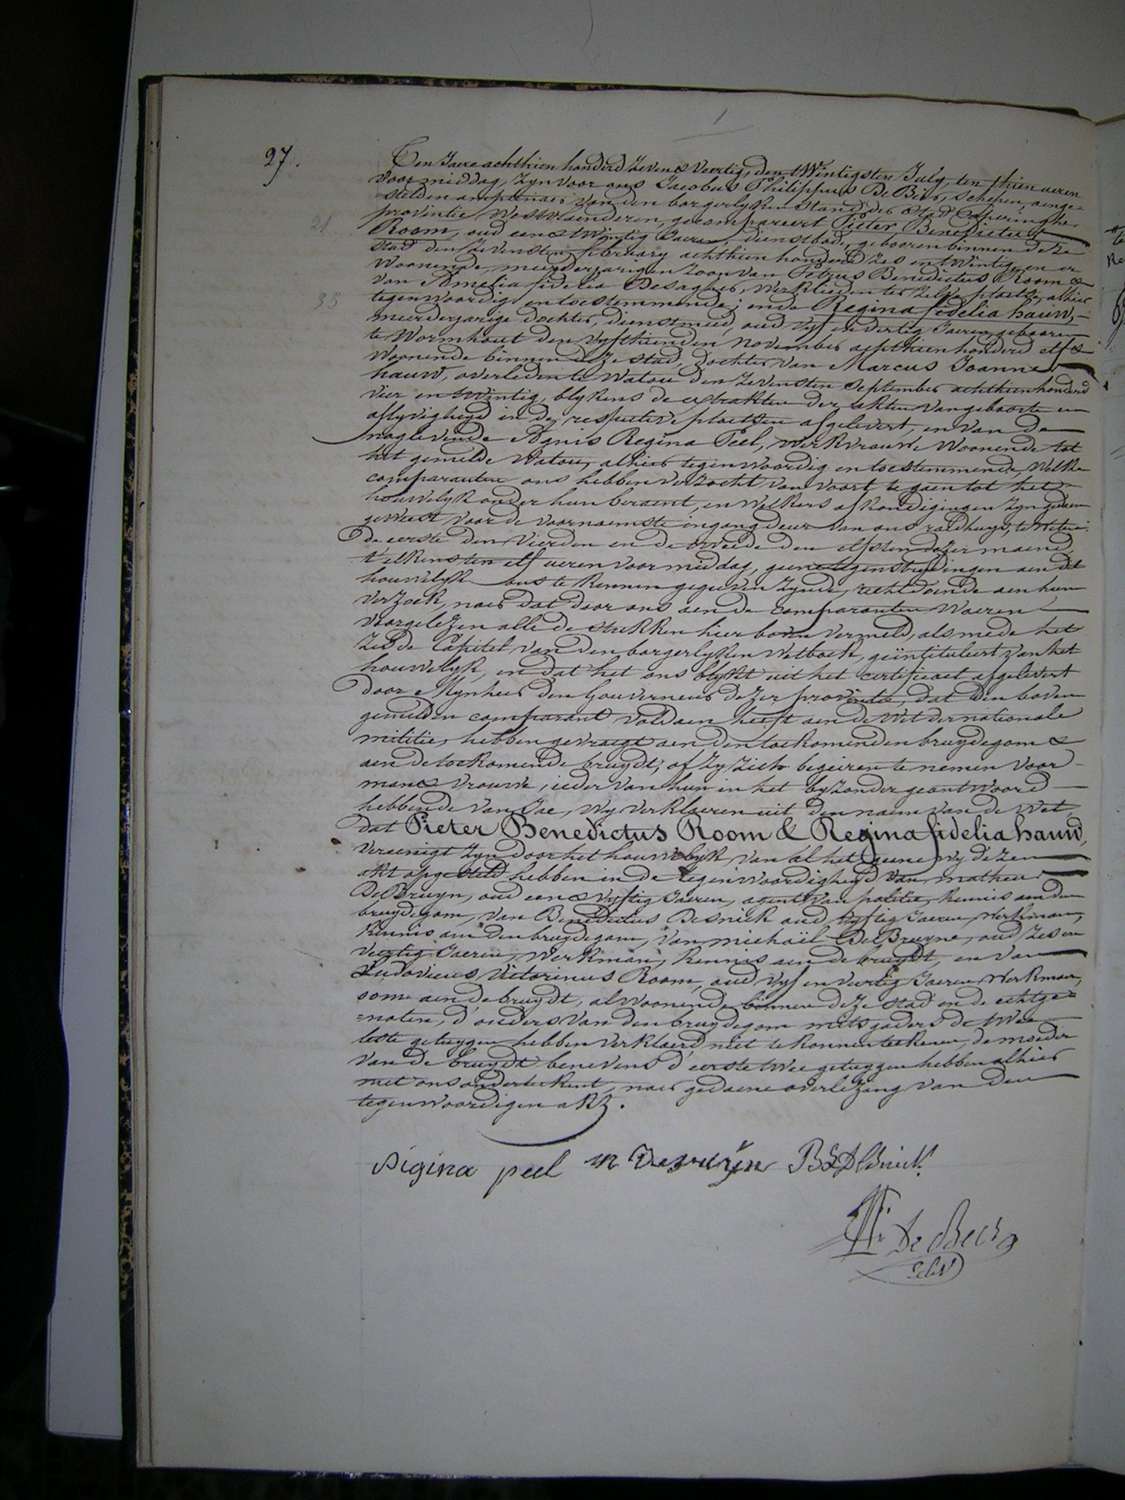 27.
Ten Jaere achthien honderd zeven & veertig, den twintigsten July, ten thien ueren
voormiddag, zyn voor ons Jacobus Philippus De Bier, schepen, aenge-
stelden amptenaer van den borgerlyken stand der stad Poperinghe
provintie Westvlaenderen, gecompareert Pieter Benedictus
21
Room, oud een & twintig Jaeren, dienstbode, gebooren binnen deze
stad den zevensten february achthien honderd zes en twintig, en er
woonende, meerderjarigen zoon van Petrus Benedictus Room &
van Amelia fidelia Desagher, werklieden ter zelve plaetse, alhier
35
tegenwoordig en toestemmende; ende Regina fidelia hauw,
meerderjarige dochter, dienstmeid, oud vyf en dertig Jaeren, gebooren
te Wormhout den vyfthienden november achthien honderd elf &
woonende binnen deze stad, dochter van Marcus Joannes
hauw, overleden te Watou den zevensten September achthien honderd
vier en twintig, blykens de extrakten der akten van geboorte en
aflyvigheyd in de respective plaetsen afgelevert, en van de
naglevende Agnis Regina Peel, werkvrouw woonende tot
het gemelde Watou, alhier tegenwoordig en toestemmende, welke
comparanten ons hebben verzocht van voort te gaen tot het
houwelyk onder hun beraemt, en welkers afkondigingen zyn gedaen
geweest voor de voornaemste ingangdeur van ons raedhuys, te weten:
de eerste den vierden en de tweede den elfsten dezer maend
t'elkens ten elf ueren voormiddag, geene tegenstrydingen aen dit
houwelyk ons te kennen gegeven zynde, recht doende aen hun
verzoek, naer dat door ons aen de comparanten waeren
voorgelezen alle de stukken hier boven vermeld, als mede het
zesde Capitel van den borgerlyken Wetboek, geïntituleert van het
houwelyk, en dat het ons blykt uit het certificaet afgelevert
door Mynheer den Gouverneur dezer provintie, dat den boven
gemelden comparant voldaen heeft aen de Wet der nationale
militie, hebben gevraegt aen den toekomenden bruydegom &
aen de toekomende bruydt, of zy zich begeiren te nemen voor
man & vrouw, ieder van hun in het byzonder geantwoord
hebbende van Jae, wy verklaeren uit den naem van de Wet
dat Pieter Benedictus Room & Regina fidelia hauw,
vereenigt zyn door het houwelyk van al het geene wy dezen
akt opgesteld hebben in de tegenwoordigheyd van matheus
De Bruyn, oud een & vyftig Jaeren, agent van politie, kennis aen den
bruydegom, van Benedictus Desnick oud vyftig Jaeren, werkman,
kennis aen den bruydegom, van michaël De Bruyne, oud zes en
veertig Jaeren, werkman, kennis aen de bruydt, en van
Ludovicus Victorinus Room, oud vyf en veertig Jaeren, werkman,
oom aen de bruydt, al woonende binnen deze stad en de echtge-
=noten, d'ouders van den bruydegom mitsgaders de twee
leste getuygen hebben verklaerd niet te konnen teekenen, de moeder
van de bruydt benevens d'eerste twee getuygen hebben alhier
met ons onderteekent, naer gedaene overlezing van den
tegenwoordigen akt.
rigina peel m debruijn
De Bier